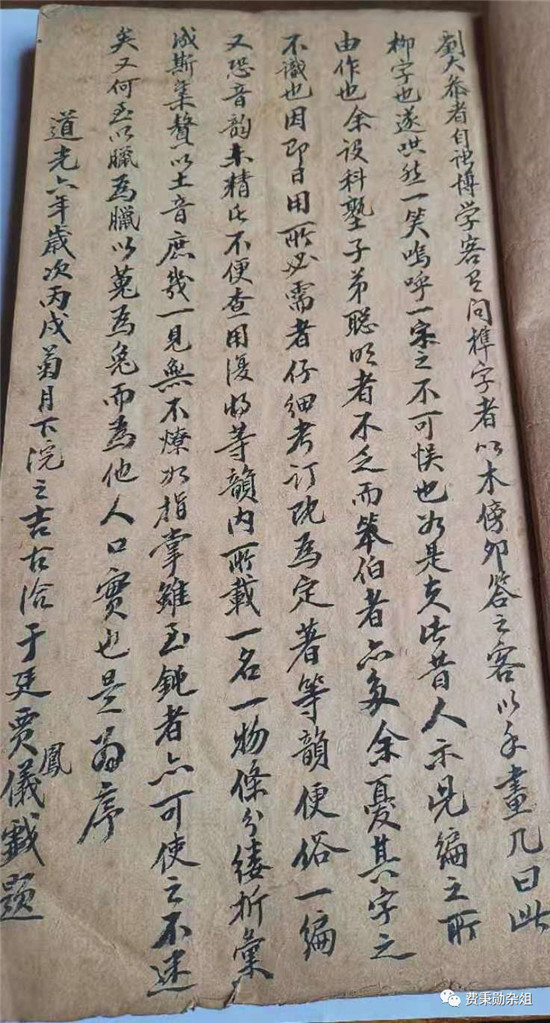 劉大爺者自詡博学客有问榫字者以木傍卯答之客以手畫几曰此
柳字也遂哄然一笑嗚呼一字之不可悮也如是夫此昔人示児編之所
由作也余设科塾子弟聪明者不乏而笨伯者亦多余憂其字之
不識也因即日用所必需者仔细考订既為定著等韻便俗一編
又恐音韵未精者不便查用復将等韻内所載一名一物條分缕析彙
成斯集聲以土音庶幾一見無不燎如指掌雖至鈍者亦可使之不迷
矣又何至以臘為獵以菟為兔而為他人口實也是為序
道光六年歲次丙戌菊月下浣之吉古洽于廷賈鳳儀戲题
费秉勋杂俎